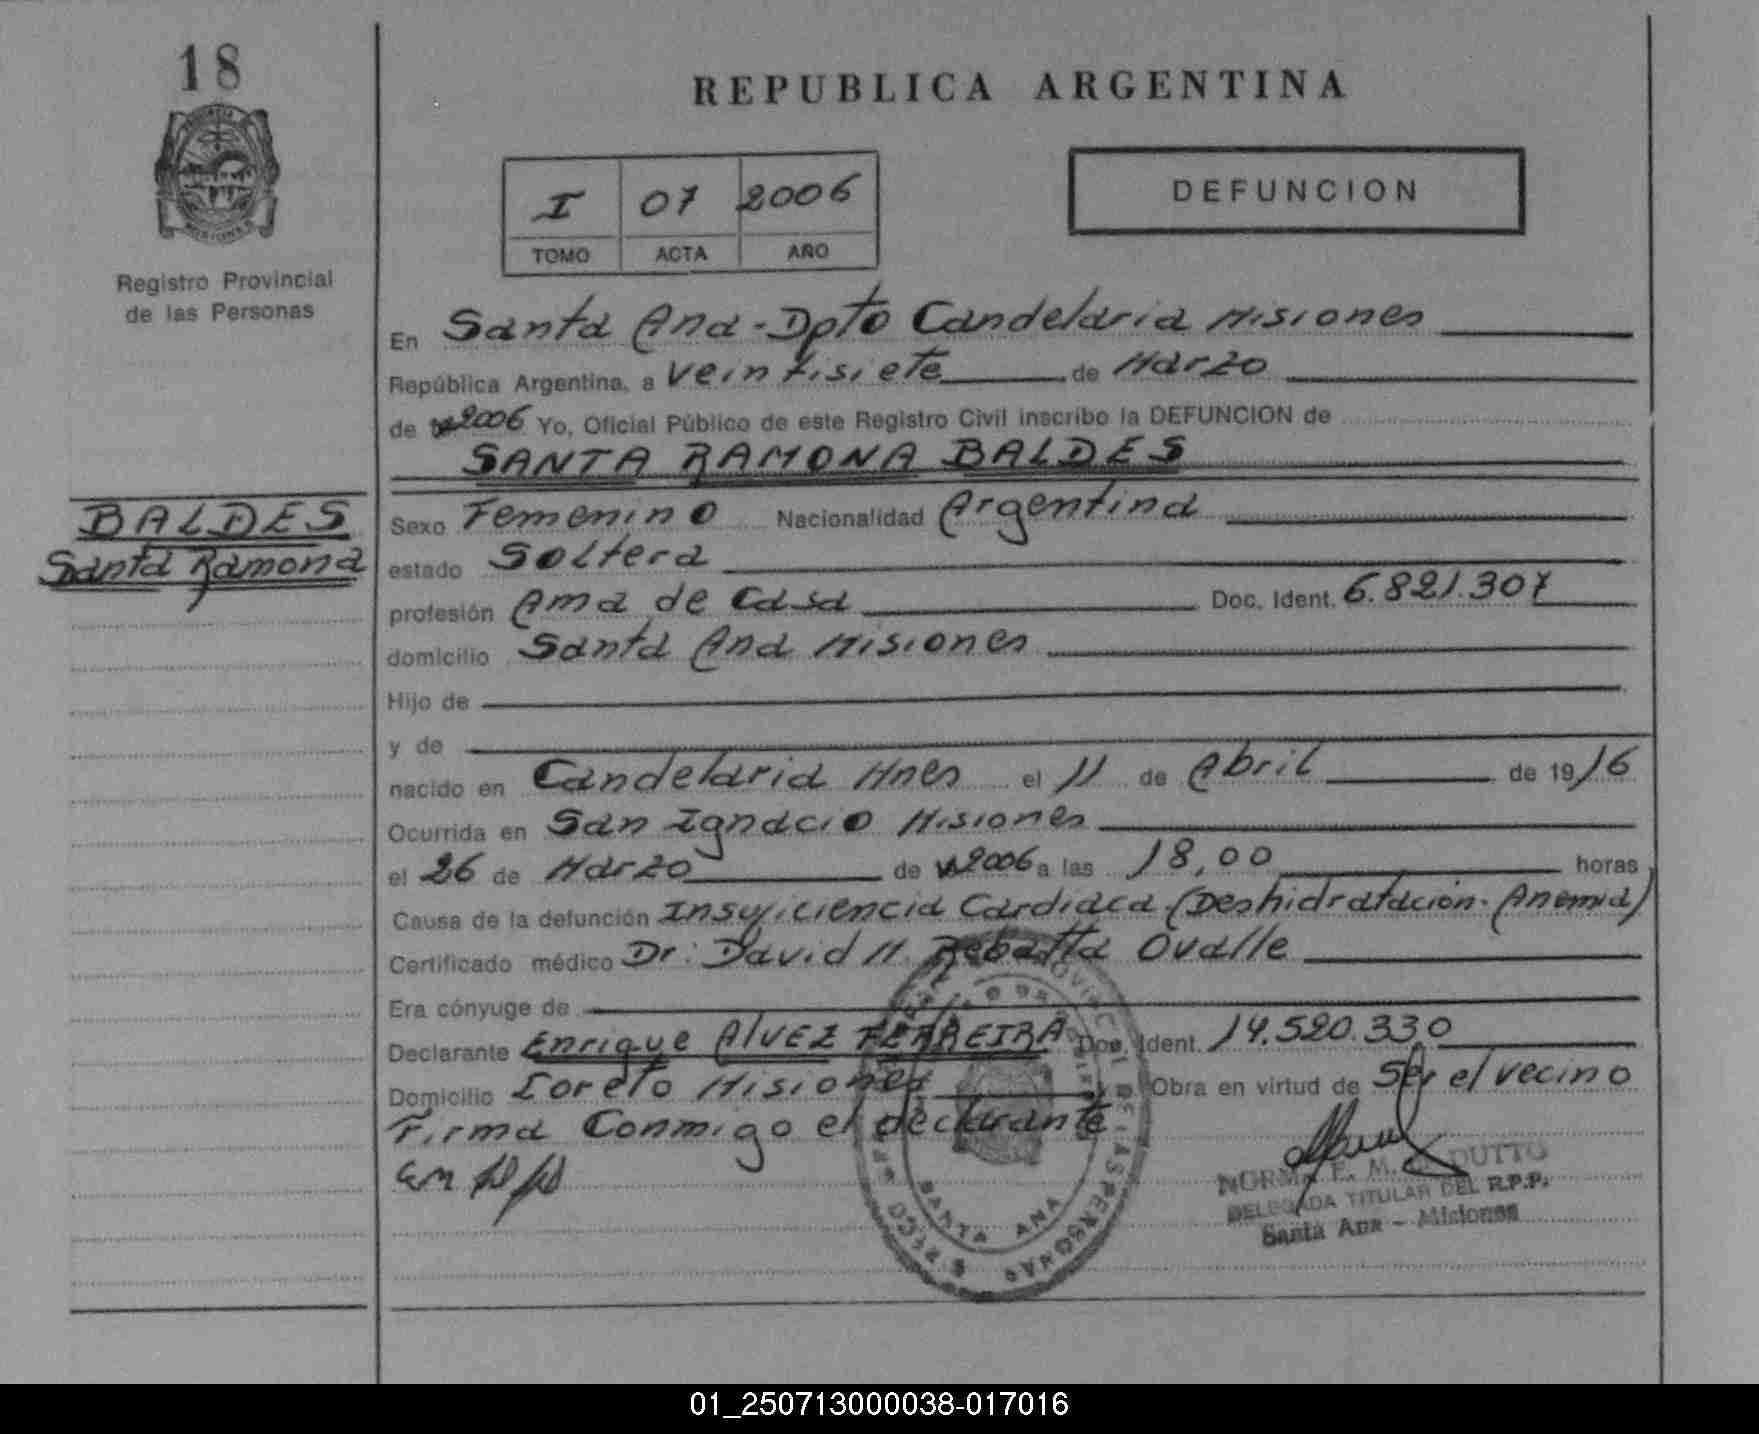 18
REPUBLICA ARGENTINA
I 07 2006
TOMO ACTA AÑO
DEFUNCION
Registro Provincial
de las Personas
En Santa Ana - Dpto Candelaria Misiones
República Argentina, a veintisiete de Marzo
de 2006 Yo, Oficial Público de este Registro Civil inscribo la DEFUNCION de
SANTA RAMONA BALDES
BALDES
Santa Ramona
Sexo Femenino Nacionalidad Argentina
estado Soltera
profesión Ama de Casa Doc. Ident. 6.821.307
domicilio Santa Ana Misiones
Hijo de
y de
nacido en Candelaria Mnes el 11 de Abril de 1916
Ocurrida en San Ignacio Misiones
el 26 de Marzo de 2006 a las 18,00 horas
Causa de la defunción Insuficiencia Cardiaca (Deshidratación - Anemia)
Certificado médico Dr: David H. Ovalle
Era cónyuge de
Declarante Enrique Alvez FERREIRA Doc. Ident. 14.520.330
Domicilio Loreto Misiones Obra en virtud de Ser el vecino
Firma Conmigo el declarante
NORMA E. M. DUTTO
DELEGADA TITULAR DEL R.P.P.
Santa Ana - Misiones
SANTA ANA
01_250713000038-017016